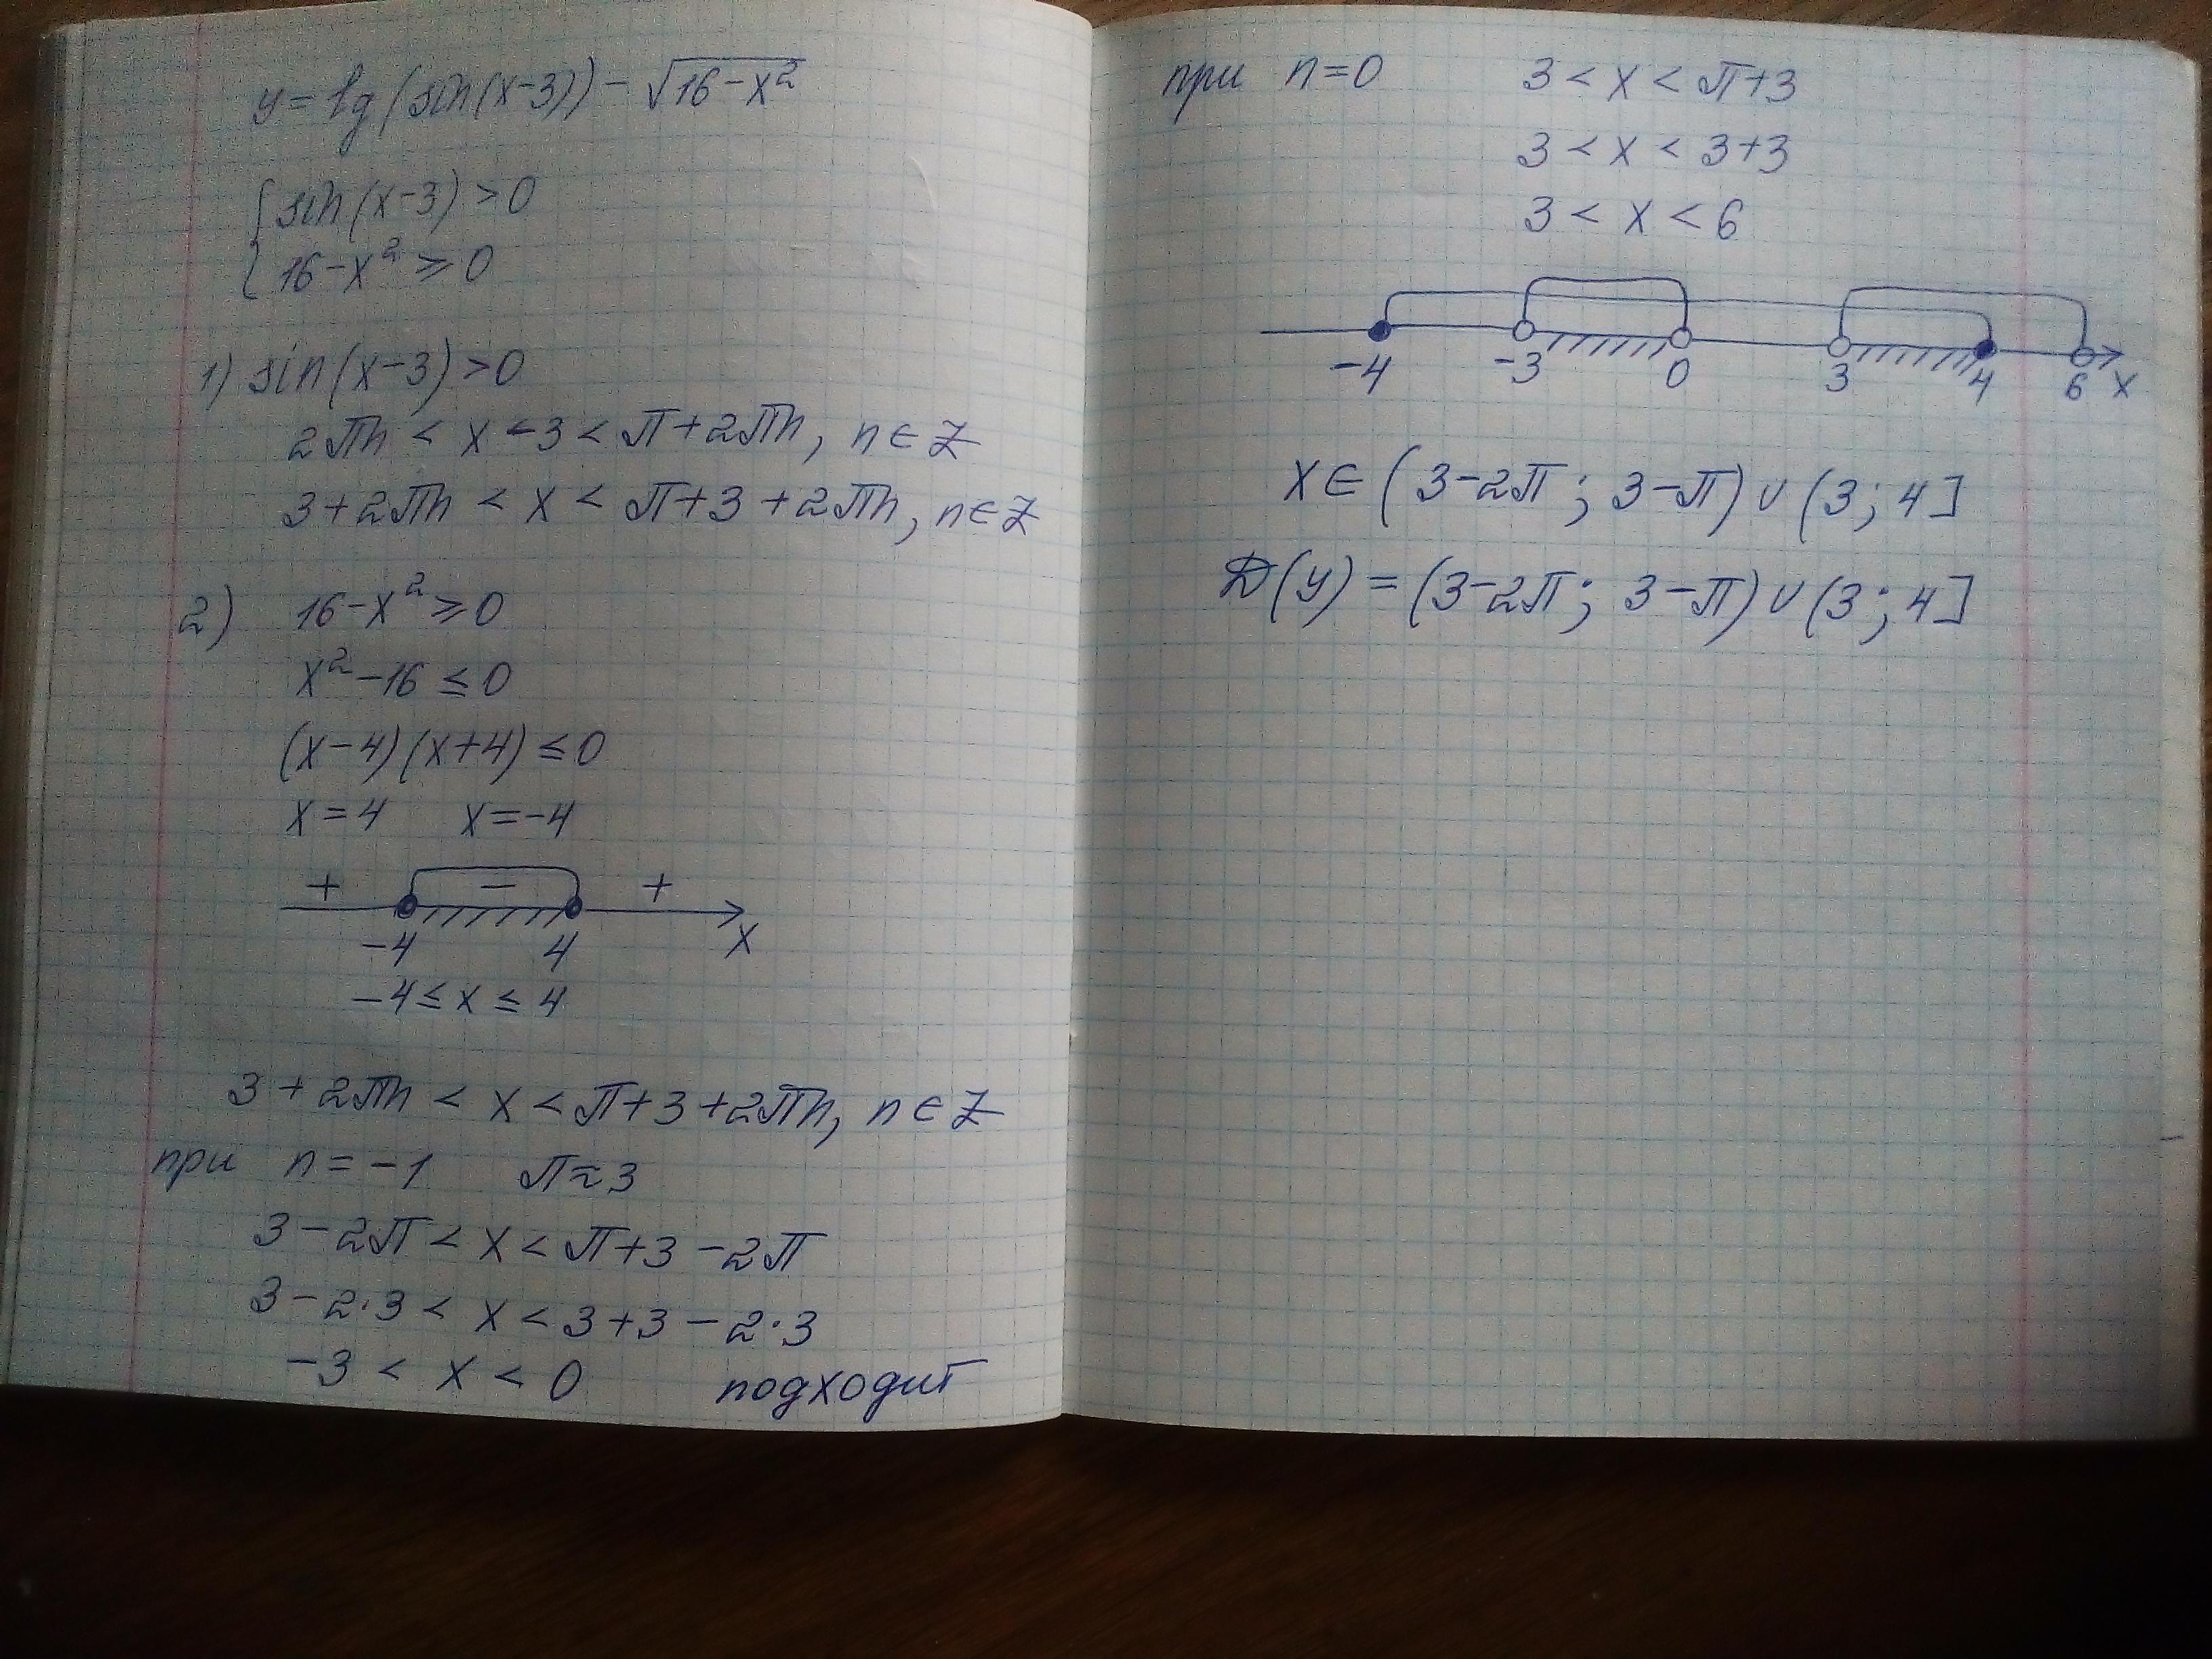 y = lg(sin(x-3)) - √16-x²
{ sin(x-3) > 0
{ 16-x² ≥ 0
1) sin(x-3) > 0
2πn < x-3 < π+2πn, n∈Z
3+2πn < x < π+3+2πn, n∈Z
2) 16-x² ≥ 0
x²-16 ≤ 0
(x-4)(x+4) ≤ 0
x=4 x=-4
+ - +
-4 4 x
-4 ≤ x ≤ 4
3+2πn < x < π+3+2πn, n∈Z
при n=-1 π≈3
3-2π < x < π+3-2π
3-2·3 < x < 3+3-2·3
-3 < x < 0 подходит
при n=0 3 < x < π+3
3 < x < 3+3
3 < x < 6
-4 -3 0 3 4 6 x
x∈(3-2π; 3-π)∪(3; 4]
D(y) = (3-2π; 3-π)∪(3; 4]